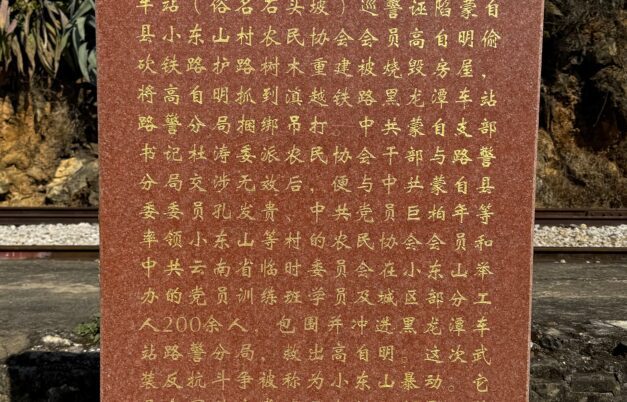 车站（俗名石头坡）巡警诬陷蒙自
县小东山村农民协会会员高自明偷
砍铁路护路树木重建被烧毁房屋，
将高自明抓到滇越铁路黑龙潭车站
路警分局捆绑吊打。中共蒙自支部
书记杜涛委派农民协会干部与路警
分局交涉无效后，便与中共蒙自县
委委员孔发贵、中共党员巨柏年等
率领小东山等村的农民协会会员和
中共云南省临时委员会在小东山举
办的党员训练班学员及城区部分工
人200余人，包围并冲进黑龙潭车
站路警分局，救出高自明。这次武
装反抗斗争被称为小东山暴动。它